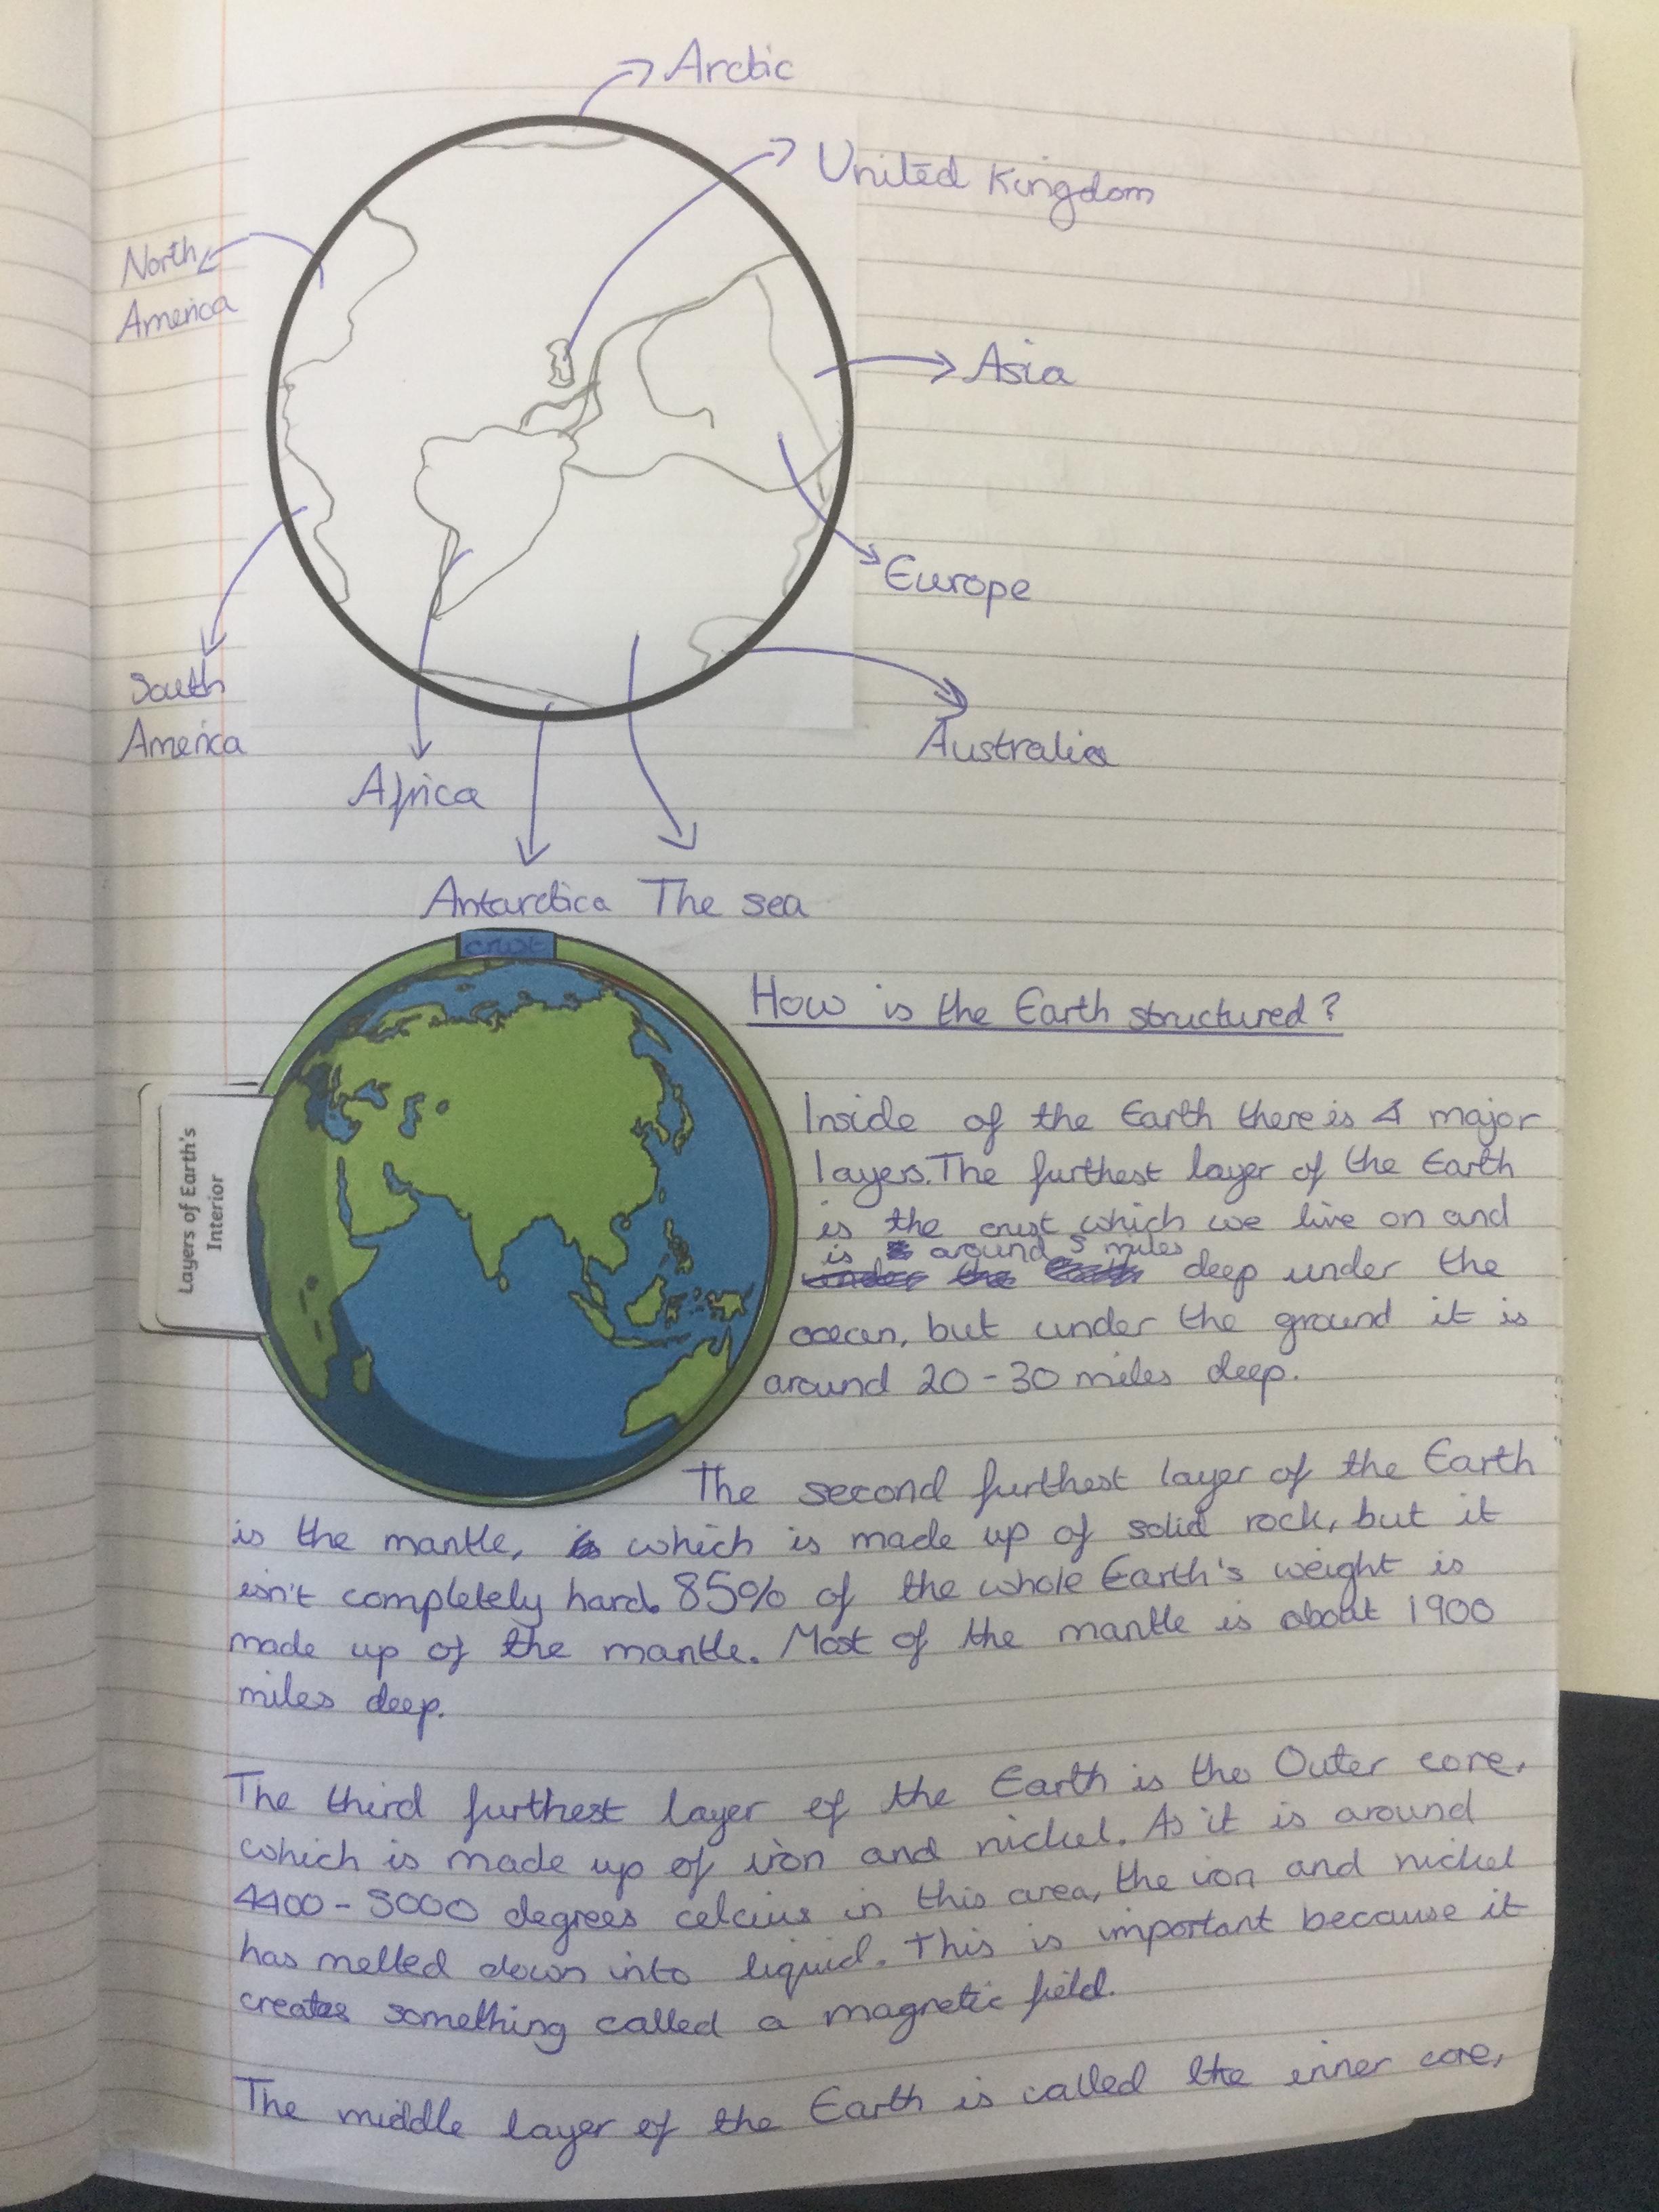 Arctic
United Kingdom
North
America
Asia
Europe
South
America
Australia
Africa
Antarctica The sea
crust
Layers of Earth's
Interior
How is the Earth structured?
Inside of the Earth there is 4 major
layers. The furthest layer of the Earth
is the crust which we live on and
is around 5 miles
under the Earth deep under the
ocean, but under the ground it is
around 20-30 miles deep.
The second furthest layer of the Earth
is the mantle, is which is made up of solid rock, but it
isn't completely hard. 85% of the whole Earth's weight is
made up of the mantle. Most of the mantle is about 1900
miles deep.
The third furthest layer of the Earth is the Outer core,
which is made up of iron and nickel. As it is around
4400-5000 degrees celcius in this area, the iron and nickel
has melted down into liquid. This is important because it
creates something called a magnetic field.
The middle layer of the Earth is called the inner core,